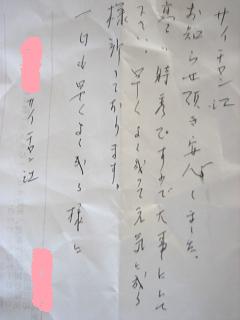 サイチロン江
お知らせ頂き安心しました。
寒い時季ですので大事にして
下さい。早くよく成って元気に成る
様祈っております。
一日も早くよく成る様に
サイチロン江